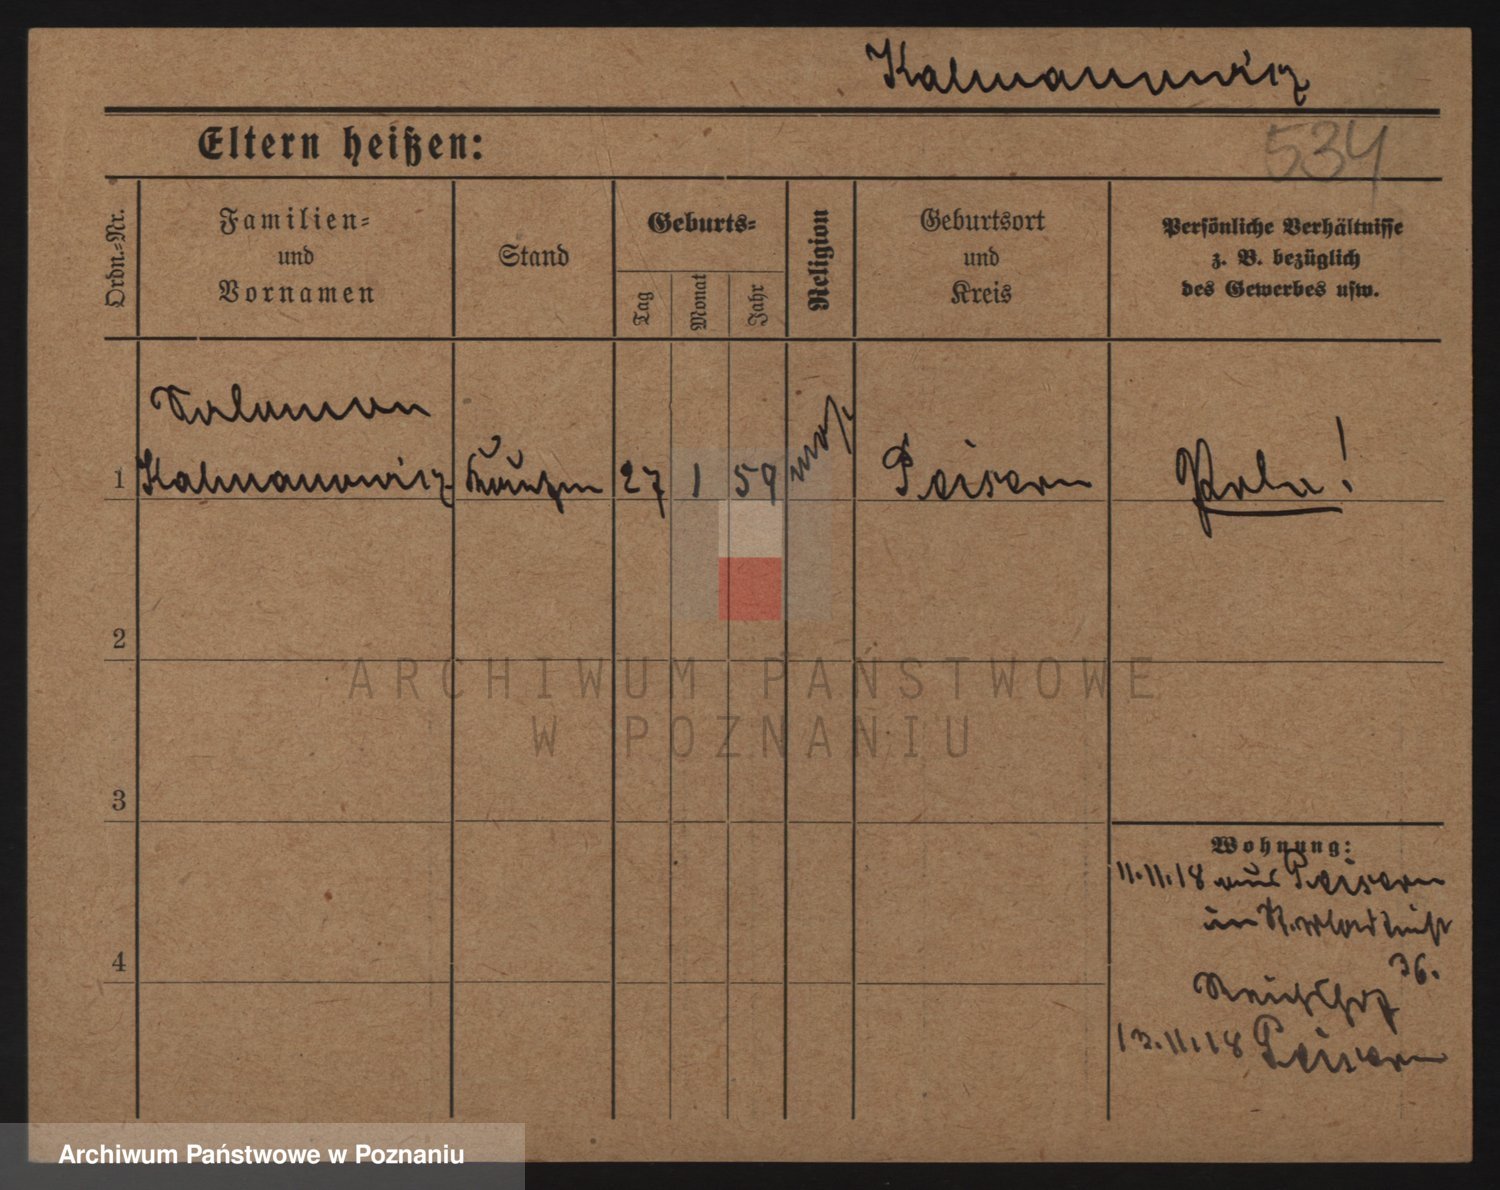 Kalmanowicz
Eltern heißen:
534
Ordn.-Nr.
Familien-
und
Vornamen
Stand
Geburts-
Tag
Monat
Jahr
Religion
Geburtsort
und
Kreis
Persönliche Verhältnisse
z. B. bezüglich
des Gewerbes usw.
Salomon
1 Kalmanowicz 27 1 59 mos. Peisern Pole!
2
ARCHIWUM PAŃSTWOWE
W POZNANIU
3
Wohnung:
11.11.18 aus Peisern
4
36.
13.11.18 Peisern
Archiwum Państwowe w Poznaniu